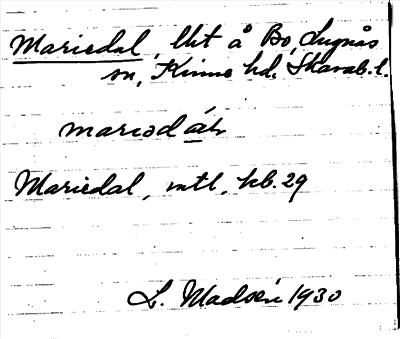 Mariedal, lht å Bo, Lugnås
sn, Kinne hd, Skarab. l.
mariədáh
Mariedal, mtl, kb. 29
L. Madsén 1930